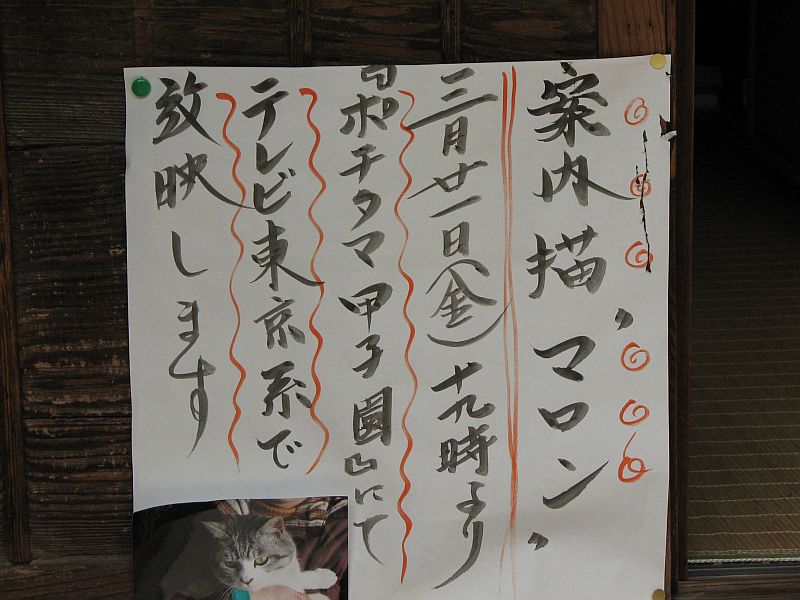 案内描〝マロン〟
三月廿一日(金)十九時より
『ポチタマ甲子園』にて
テレビ東京系で
放映します